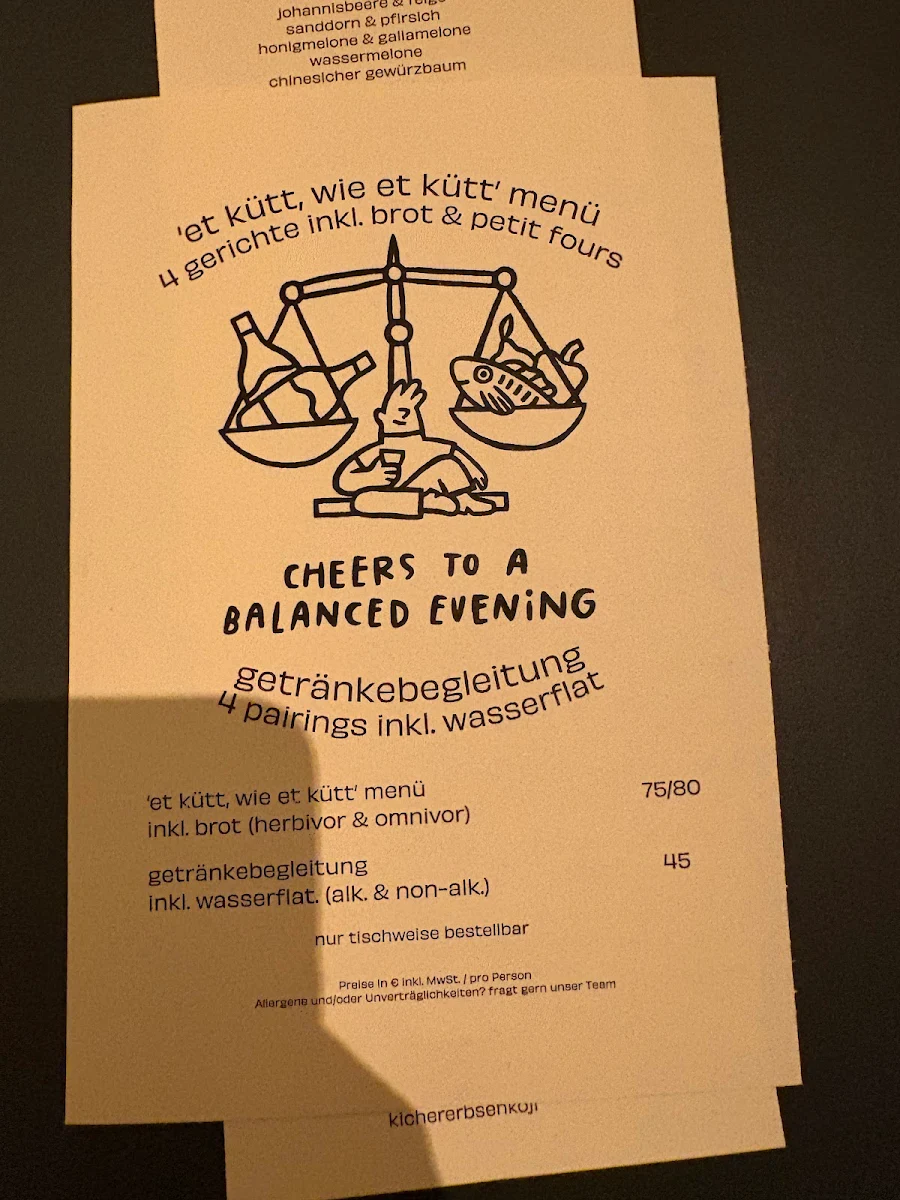 johannisbeere & feige
sanddorn & pfirsich
honigmelone & galiamelone
wassermelone
chinesicher gewürzbaum
'et kütt, wie et kütt' menü
4 gerichte inkl. brot & petit fours
CHEERS TO A
BALANCED EVENING
getränkebegleitung
4 pairings inkl. wasserflat
'et kütt, wie et kütt' menü 75/80
inkl. brot (herbivor & omnivor)
getränkebegleitung 45
inkl. wasserflat. (alk. & non-alk.)
nur tischweise bestellbar
Preise in € inkl. MwSt. / pro Person
Allergene und/oder Unverträglichkeiten? fragt gern unser Team
kichererbsenkoji